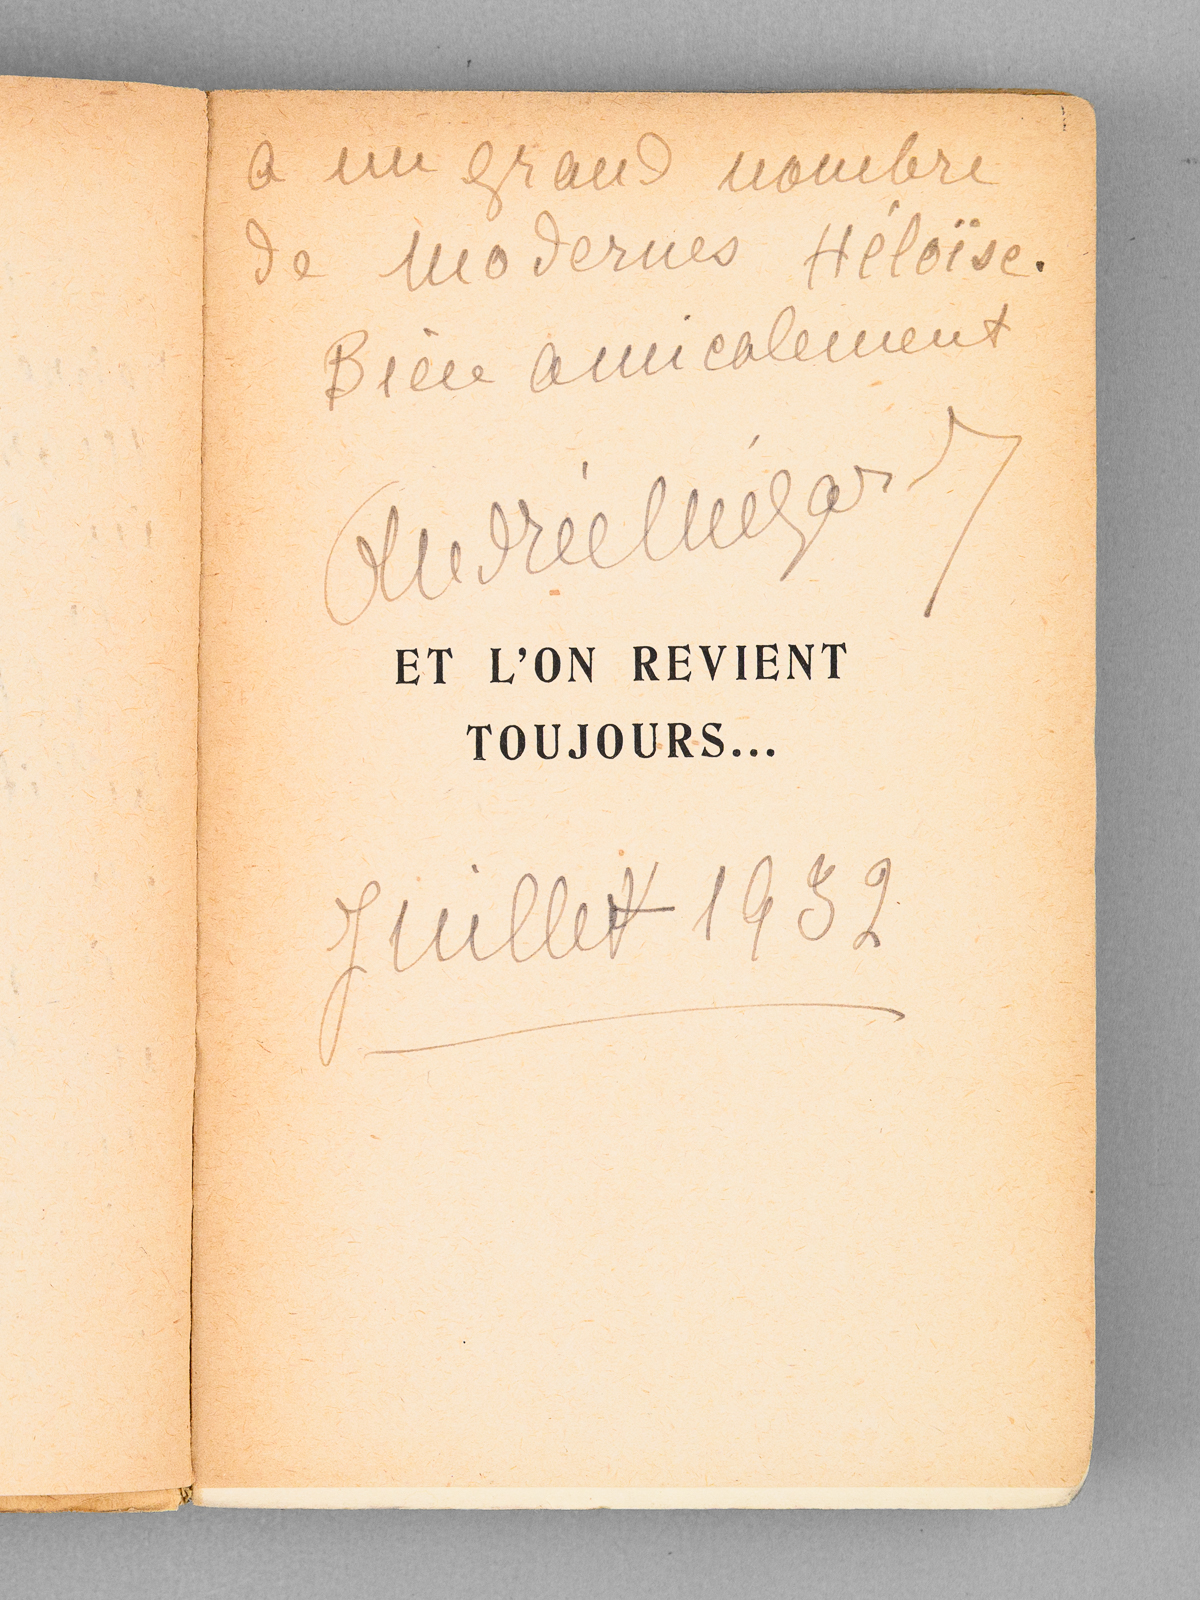 a un grand nombre
de modernes Héloïse.
Bien amicalement
Andrée Mégard
ET L'ON REVIENT
TOUJOURS...
Juillet 1932